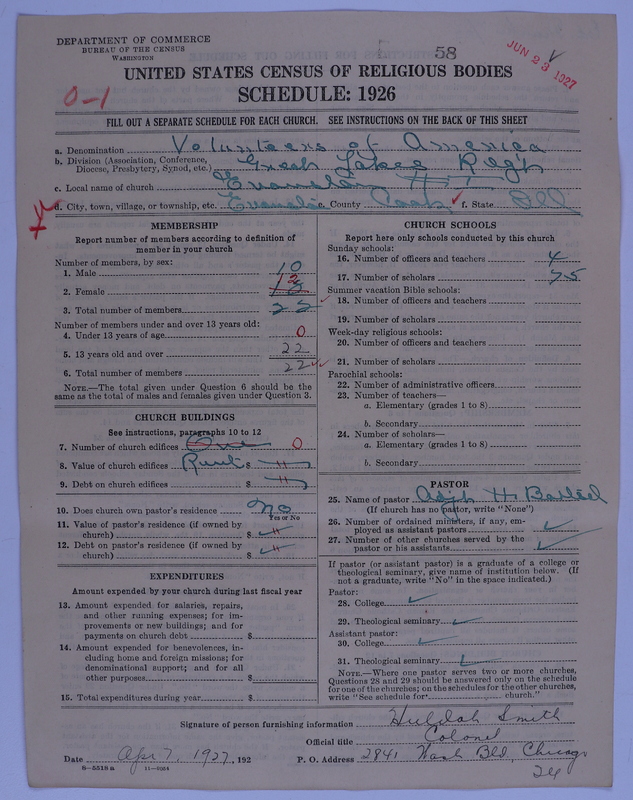 DEPARTMENT OF COMMERCE
BUREAU OF THE CENSUS
WASHINGTON
58
JUN 23 1927
UNITED STATES CENSUS OF RELIGIOUS BODIES
SCHEDULE: 1926
0-1
FILL OUT A SEPARATE SCHEDULE FOR EACH CHURCH. SEE INSTRUCTIONS ON THE BACK OF THIS SHEET
a. Denomination Volunteers of America
b. Division (Association, Conference, Diocese, Presbytery, Synod, etc.) Great Lakes Reg'n
c. Local name of church Evanston
d. City, town, village, or township, etc. Evanston e. County Cook f. State Ill
MEMBERSHIP
Report number of members according to definition of member in your church
Number of members, by sex:
1. Male 10
2. Female 12
3. Total number of members 22
Number of members under and over 13 years old:
4. Under 13 years of age 0
5. 13 years old and over 22
6. Total number of members 22
NOTE.—The total given under Question 6 should be the same as the total of males and females given under Question 3.
CHURCH BUILDINGS
See instructions, paragraphs 10 to 12
7. Number of church edifices One 0
8. Value of church edifices Rent $ "
9. Debt on church edifices $ "
10. Does church own pastor's residence no
Yes or No
11. Value of pastor's residence (if owned by church) $ "
12. Debt on pastor's residence (if owned by church) $ "
EXPENDITURES
Amount expended by your church during last fiscal year
13. Amount expended for salaries, repairs, and other running expenses; for improvements or new buildings; and for payments on church debt $
14. Amount expended for benevolences, including home and foreign missions; for denominational support; and for all other purposes $
15. Total expenditures during year $
CHURCH SCHOOLS
Report here only schools conducted by this church
Sunday schools:
16. Number of officers and teachers 4
17. Number of scholars 75
Summer vacation Bible schools:
18. Number of officers and teachers
19. Number of scholars
Week-day religious schools:
20. Number of officers and teachers
21. Number of scholars
Parochial schools:
22. Number of administrative officers
23. Number of teachers—
a. Elementary (grades 1 to 8)
b. Secondary
24. Number of scholars—
a. Elementary (grades 1 to 8)
b. Secondary
PASTOR
25. Name of pastor Adjt H
(If church has no pastor, write "None")
26. Number of ordained ministers, if any, employed as assistant pastors
27. Number of other churches served by the pastor or his assistants
If pastor (or assistant pastor) is a graduate of a college or theological seminary, give name of institution below. (If not a graduate, write "No" in the space indicated.)
Pastor:
28. College
29. Theological seminary
Assistant pastor:
30. College
31. Theological seminary
NOTE.—Where one pastor serves two or more churches, Questions 28 and 29 should be answered only on the schedule for one of the churches; on the schedules for the other churches, write "See schedule for church."
Signature of person furnishing information Huldah Smith
Official title Colonel
Date Apr 7, 1927, 192
P. O. Address 2841 Wash Bld, Chicago
24
8—5518a 11—9264